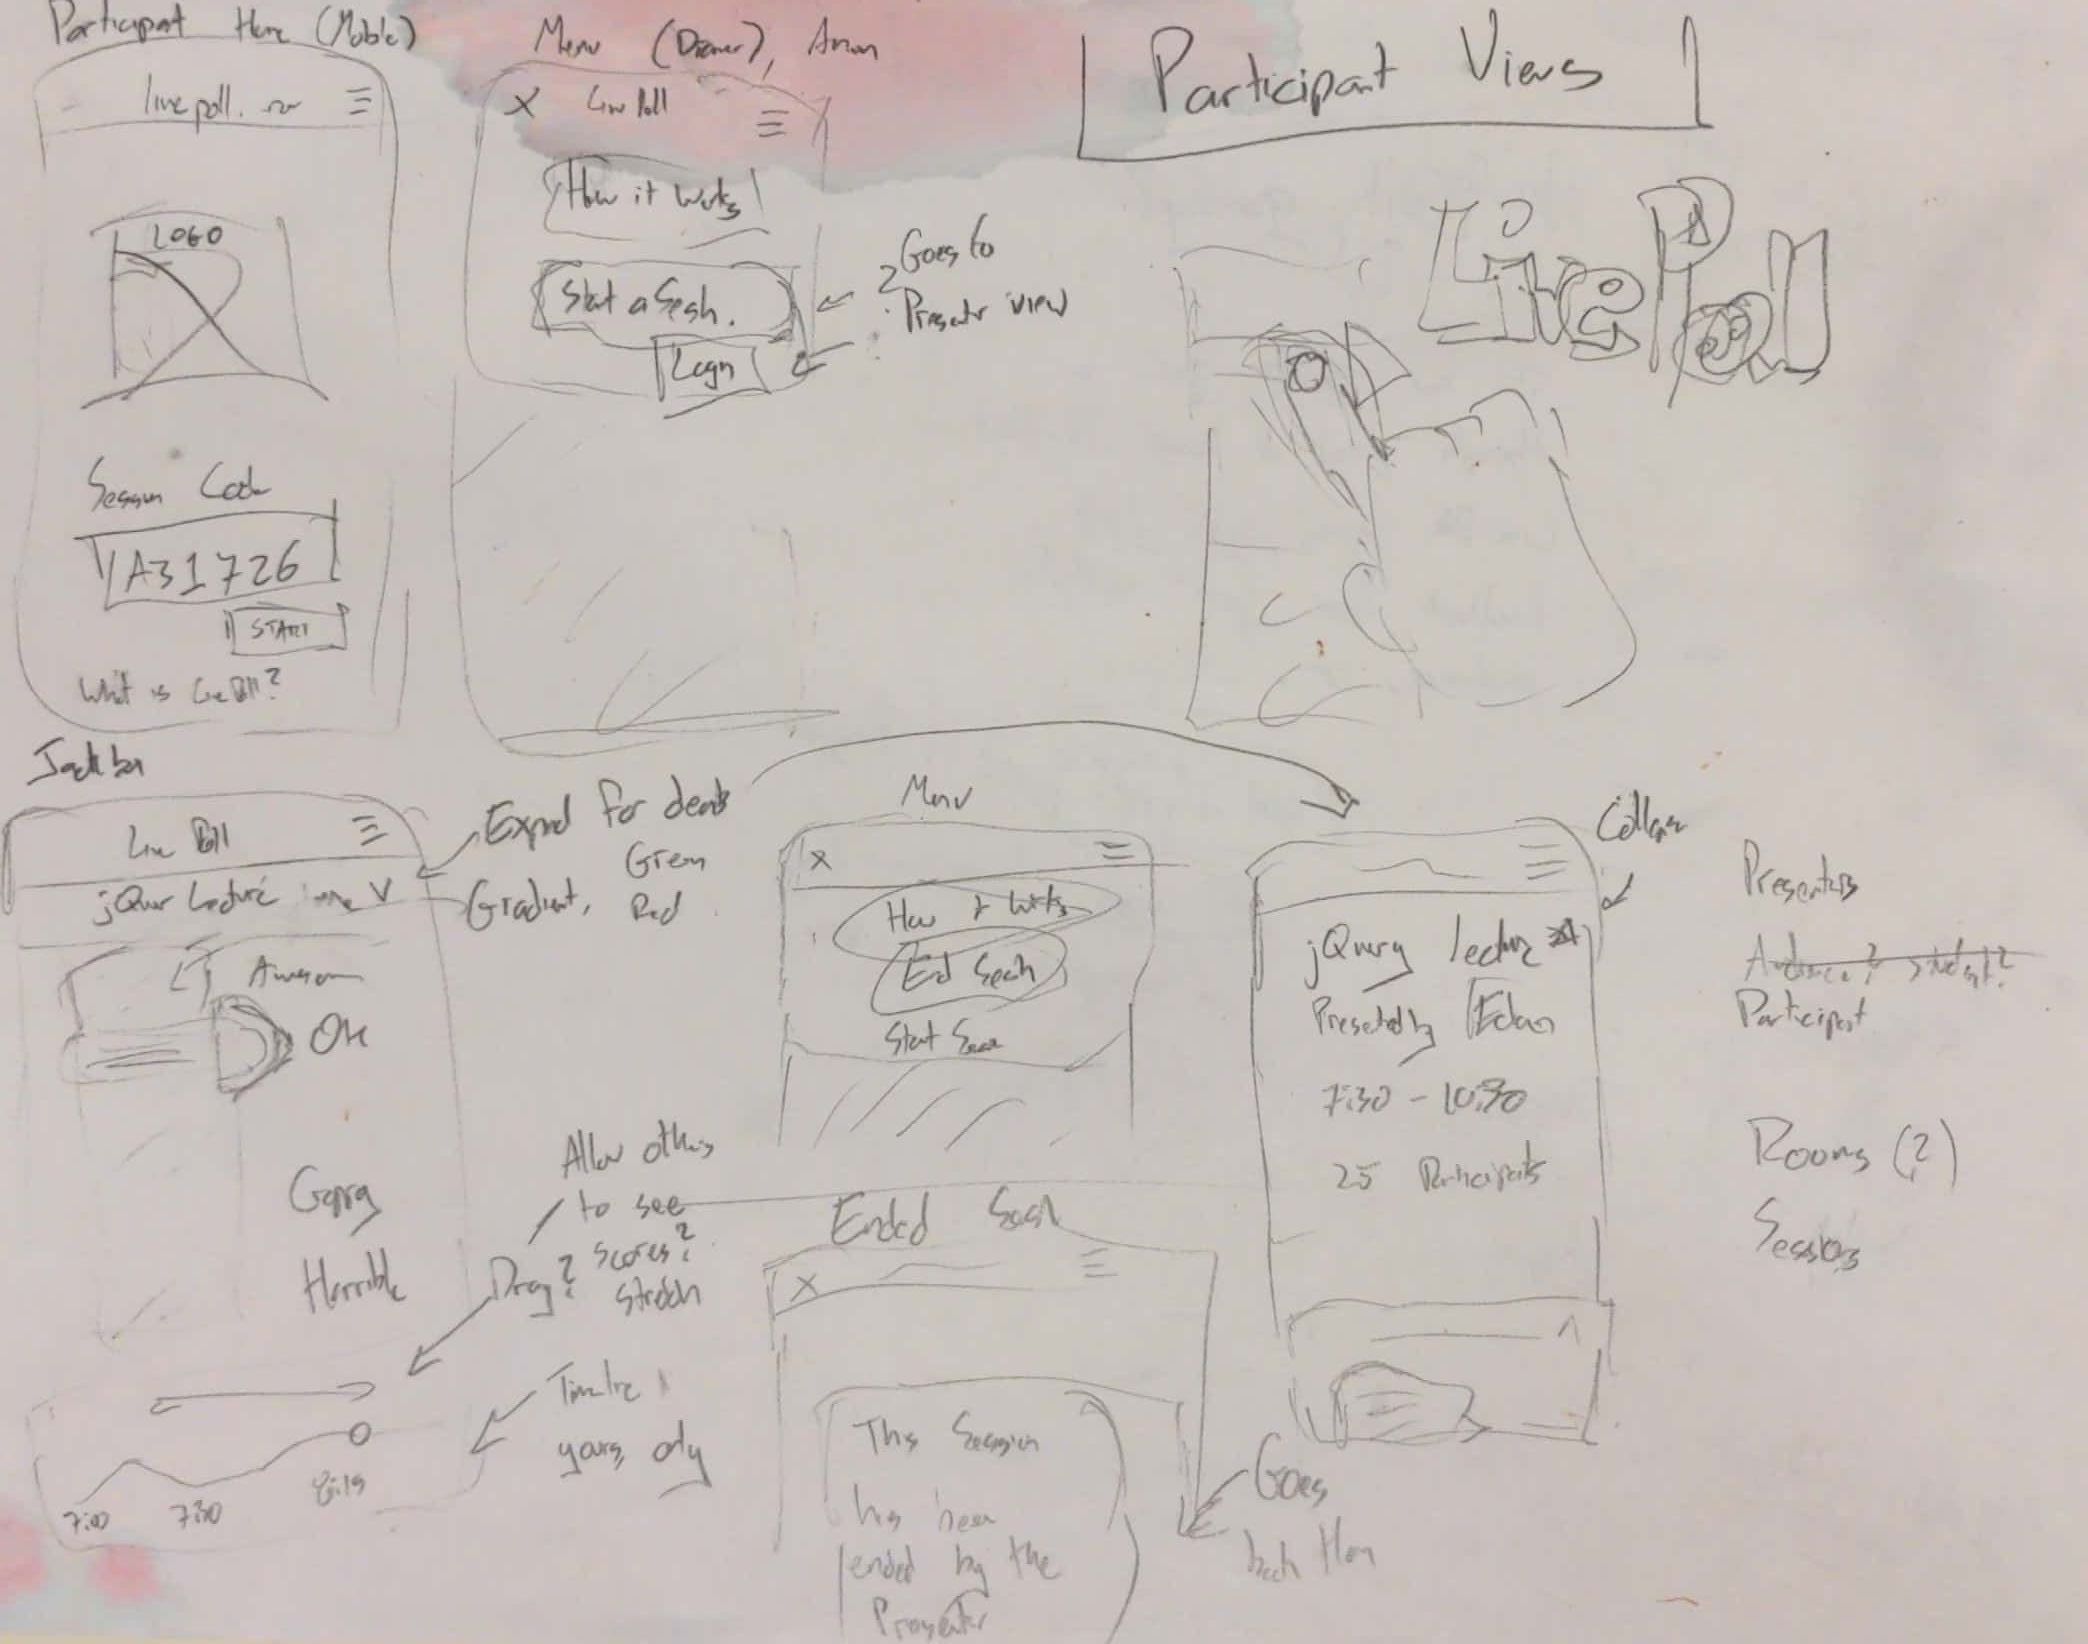 Participant Home (Mobile)
livepoll.
LOGO
Session Code
A31726
START
What is LivePoll?
Menu (Drawer), Anon
X Live Poll
How it works
Start a Sesh.
Login
? Goes to
Presenter view
Participant Views
LivePoll
Live Poll
jQuery Lecture V
Awesome
OK
Going
Horrible
7:00 7:30 8:15
Expand for details
Gradient, Green
Red
Allow others
to see
scores?
stretch
Drag?
Timeline
yours, only
Menu
X
How it works
End Sesh
Start Sesh
Ended Sesh
X
This Session
has been
ended by the
Presenter
Goes
back Home
Collapse
jQuery Lecture
Presented by Edan
7:30 - 10:30
25 Participants
Presenters
Audience? Student?
Participant
Rooms (?)
Sessions